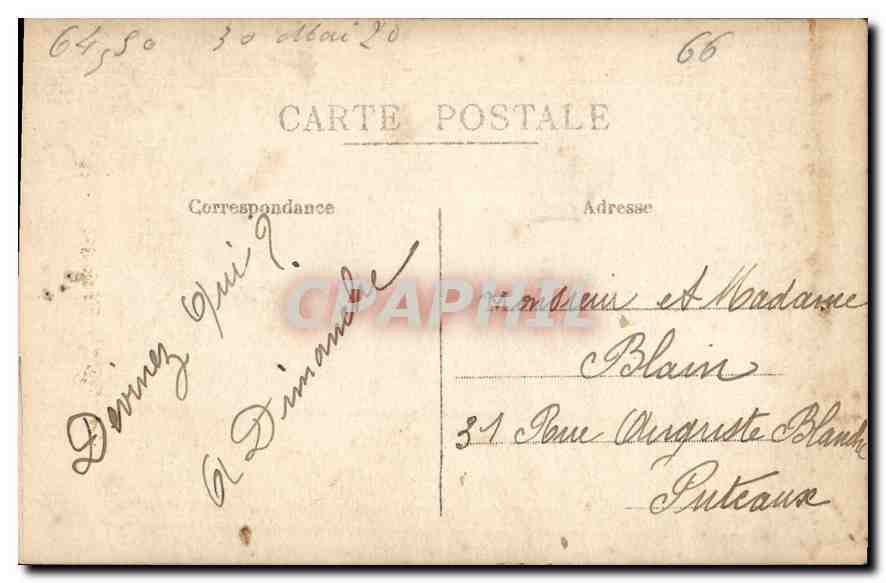 64,50 30 Mai 20 66
CARTE POSTALE
Correspondance
Devinez Qui ?
A Dimanche
Adresse
Monsieur et Madame
Blain
31 Rue Auguste Blanche
Puteaux
CPAPHIL